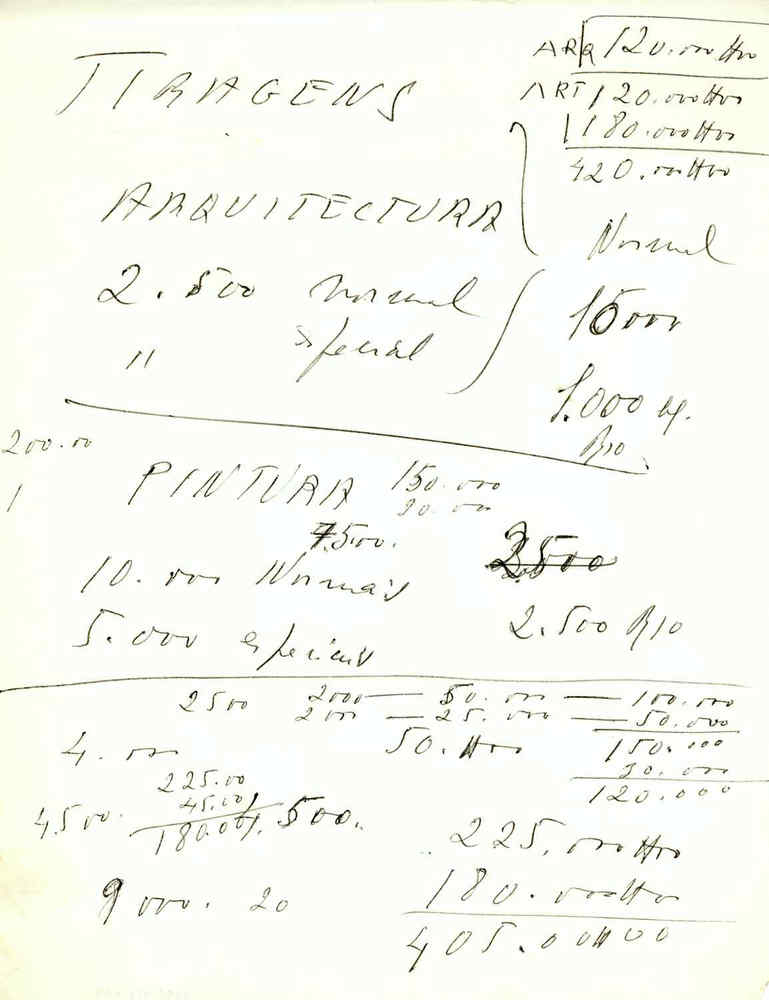 ARQ 120.000$00
TIRAGENS
ART 120.000$00
180.000$00
420.000$00
ARQUITECTURA
Normal
2.500 normal
15000
" especial
1.000 ex.
Rio
200.00
1
PINTURA 150.000
20.000
7.500.
3500
10.000 Normais
2.500 Rio
5.000 especiais
2500 2000 — 50.000 — 100.000
2000 — 25.000 — 50.000
4.000 50.$00 150.000
30.000
225.00 120.000
45.00
4.500. 180.00 1.500.
225.000$00
9000. 20 180.000$00
405.000$00